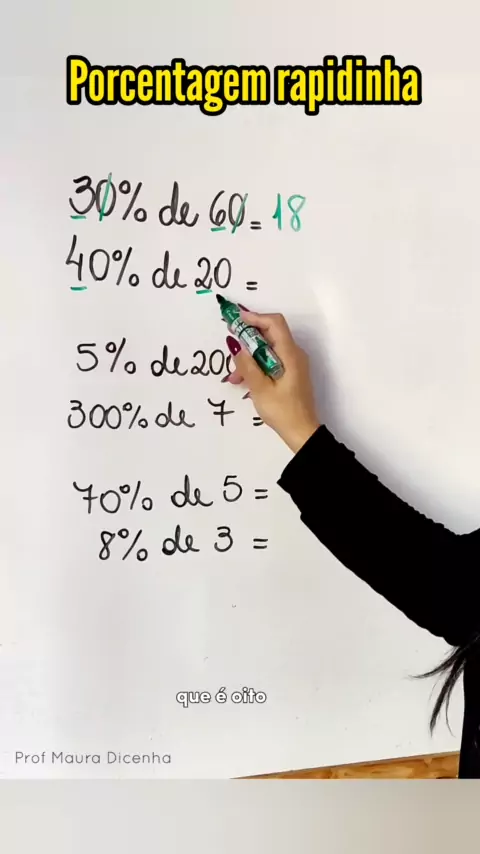 Porcentagem rapidinha
30% de 60 = 18
40% de 20 =
5% de 200
300% de 7 =
70% de 5 =
8% de 3 =
que é oito
Prof Maura Dicenha